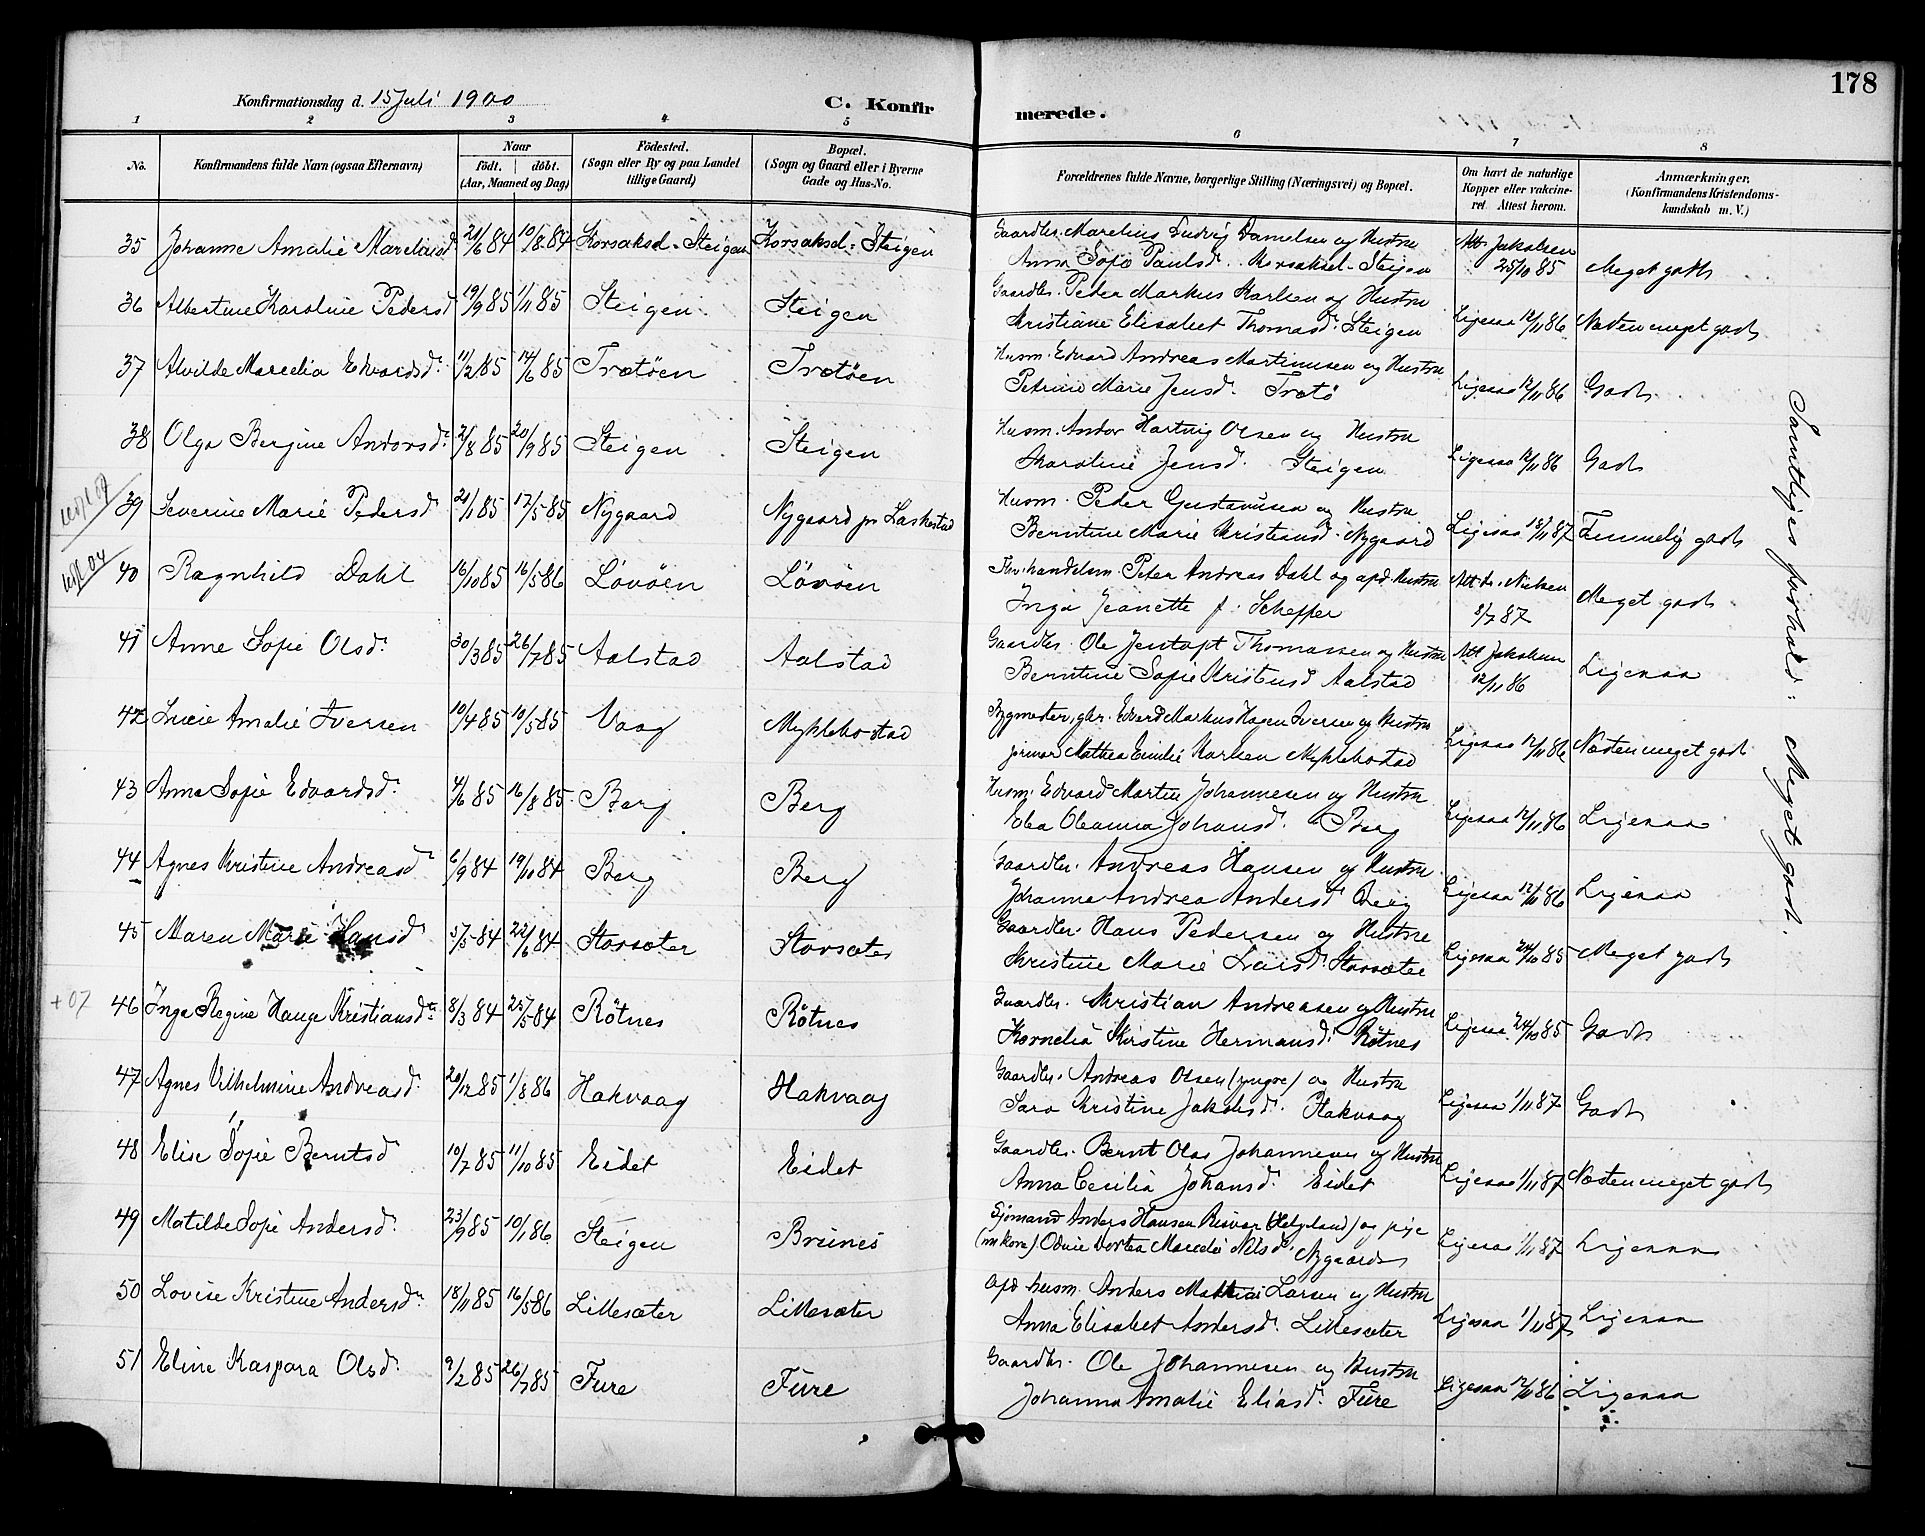 178
Konfirmationsdag d. 15 Juli 1900
C. Konfirmerede.
1 2 3 4 5 6 7 8
No. Konfirmandens fulde Navn (ogsaa Efternavn) Naar født. døbt. (Aar, Maaned og Dag) Födested. (Sogn eller By og paa Landet tillige Gaard) Bopæl. (Sogn og Gaard eller i Byerne Gade og Hus-No. Forældrenes fulde Navne, borgerlige Stilling (Næringsvei) og Bopæl. Om havt de naturlige Kopper eller vakcineret. Attest herom. Anmærkninger. (Konfirmandens Kristendomskundskab m. V.)
35 Johanne Amalie Mareliusd. 21/6 84 10/8 84 Korsaksel-Steigen Korsaksel-Steigen Gaardbr. Marelius Ludvig Danielsen og Hustru
Anna Sofie Paulsd. Korsaksel-Steigen Att. Jakobsen 25/10 85 Meget godt
36 Albertine Karoline Pedersd 19/9 85 1/11 85 Steigen Steigen Gaardbr. Peder Markus Karlsen og Hustru
Kristiane Elisabet Thomasd. Steigen Ligesaa 12/11 86 Næsten meget godt
37 Alvilde Marcelia Edvardsd. 11/2 85 14/6 85 Trætöen Trætöen Husm. Edvard Andreas Martinusen og Hustru
Petrine Marie Jensd. Trætö Ligesaa 12/11 86 Godt
38 Olga Bergine Andorsd. 2/8 85 20/9 85 Steigen Steigen Husm. Andor Hartvig Olsen og Hustru
Karoline Jensd. Steigen Ligesaa 12/11 86 Godt
39 Severine Marie Pedersd 21/1 85 17/5 85 Nygaard Nygaard pr Laskestad Husm. Peder Gustavusen og Hustru
Berntine Marie Kristiansd. Nygaard Ligesaa 18/11 87 Temmelig godt
40 Ragnhild Dahl 16/10 85 16/5 86 Lövöen Lövöen Peter Andreas Dahl og afd. Hustru
Inga Jeanette f. Scheffer Att. dr. Nielsen 8/7 87 Meget godt
41 Anne Sofie Olsd. 30/3 85 26/7 85 Aalstad Aalstad Gaardbr. Ole Jentoft Thomassen og Hustru
Berntine Sofie Aalstad Att Jakobsen 12/11 86 Ligesaa
42 Amalie Iversen 10/4 85 10/5 85 Vaag Myklebostad Bygmester, gbr. Edvard Markus Hagen Iversen og Hustru
Mathea Emilie Karlsen Myklebostad Ligesaa 12/11 86 Næsten meget godt
43 Anna Sofie Edvardsd. 4/6 85 16/8 85 Berg Berg Husm. Edvard Martin Johannesen og Hustru
Olea Oleanna Johansd. Berg Ligesaa 12/11 86 Ligesaa
44 Agnes Kristine Andreasd 6/9 84 19/10 84 Berg Berg Gaardbr. Andreas Hansen og Hustru
Johanna Andrea Andersd. Berg Ligesaa 12/11 86 Ligesaa
45 Maren Marie Hansd 5/5 84 22/6 84 Storsæter Storsæter Gaardbr. Hans Pedersen og Hustru
Kristine Marie Larsd. Storsæter Ligesaa 24/10 85 Meget godt
+07 46 Inga Regine Hauge Kristiansd. 8/3 84 25/5 84 Rötnes Rötnes Gaardbr. Kristian Andreasen og Hustru
Kornelia Kirstine Hermansd. Rötnes Ligesaa 24/10 85 Godt
47 Agnes Vilhelmine Andreasd. 20/12 85 1/8 86 Hakvaag Hakvaag Gaardbr. Andreas Olsen (yngre) og Hustru
Sara Kristine Jakobsd. Hakvaag Ligesaa 1/11 87 Godt
48 Elise Sofie Berntsd 10/7 85 11/10 85 Eidet Eidet Gaardbr. Bernt Olas Johannesen og Hustru
Anna Cecilia Johansd. Eidet Ligesaa 1/11 87 Næsten meget godt
49 Matilde Sofie Andersd. 23/9 85 10/1 86 Steigen Brunes Sjömand Anders Hansen (Helgeland) og pige
Dortea Nilsd. Nygaard Ligesaa 1/11 87 Ligesaa
50 Lovise Kristine Andersd. 18/11 85 16/5 86 Lillesæter Lillesæter Afd husm. Anders Mathias Larsen og Hustru
Anna Elisabet Andersd. Lillesæter Ligesaa 1/11 87 Ligesaa
51 Eline Kaspara Olsd. 9/2 85 26/7 85 Fure Fure Gaardbr. Ole Johannesen og Hustru
Johanna Amalie Eliasd. Fure Ligesaa 12/11 86 Ligesaa
Samtliges forhold: Meget godt.